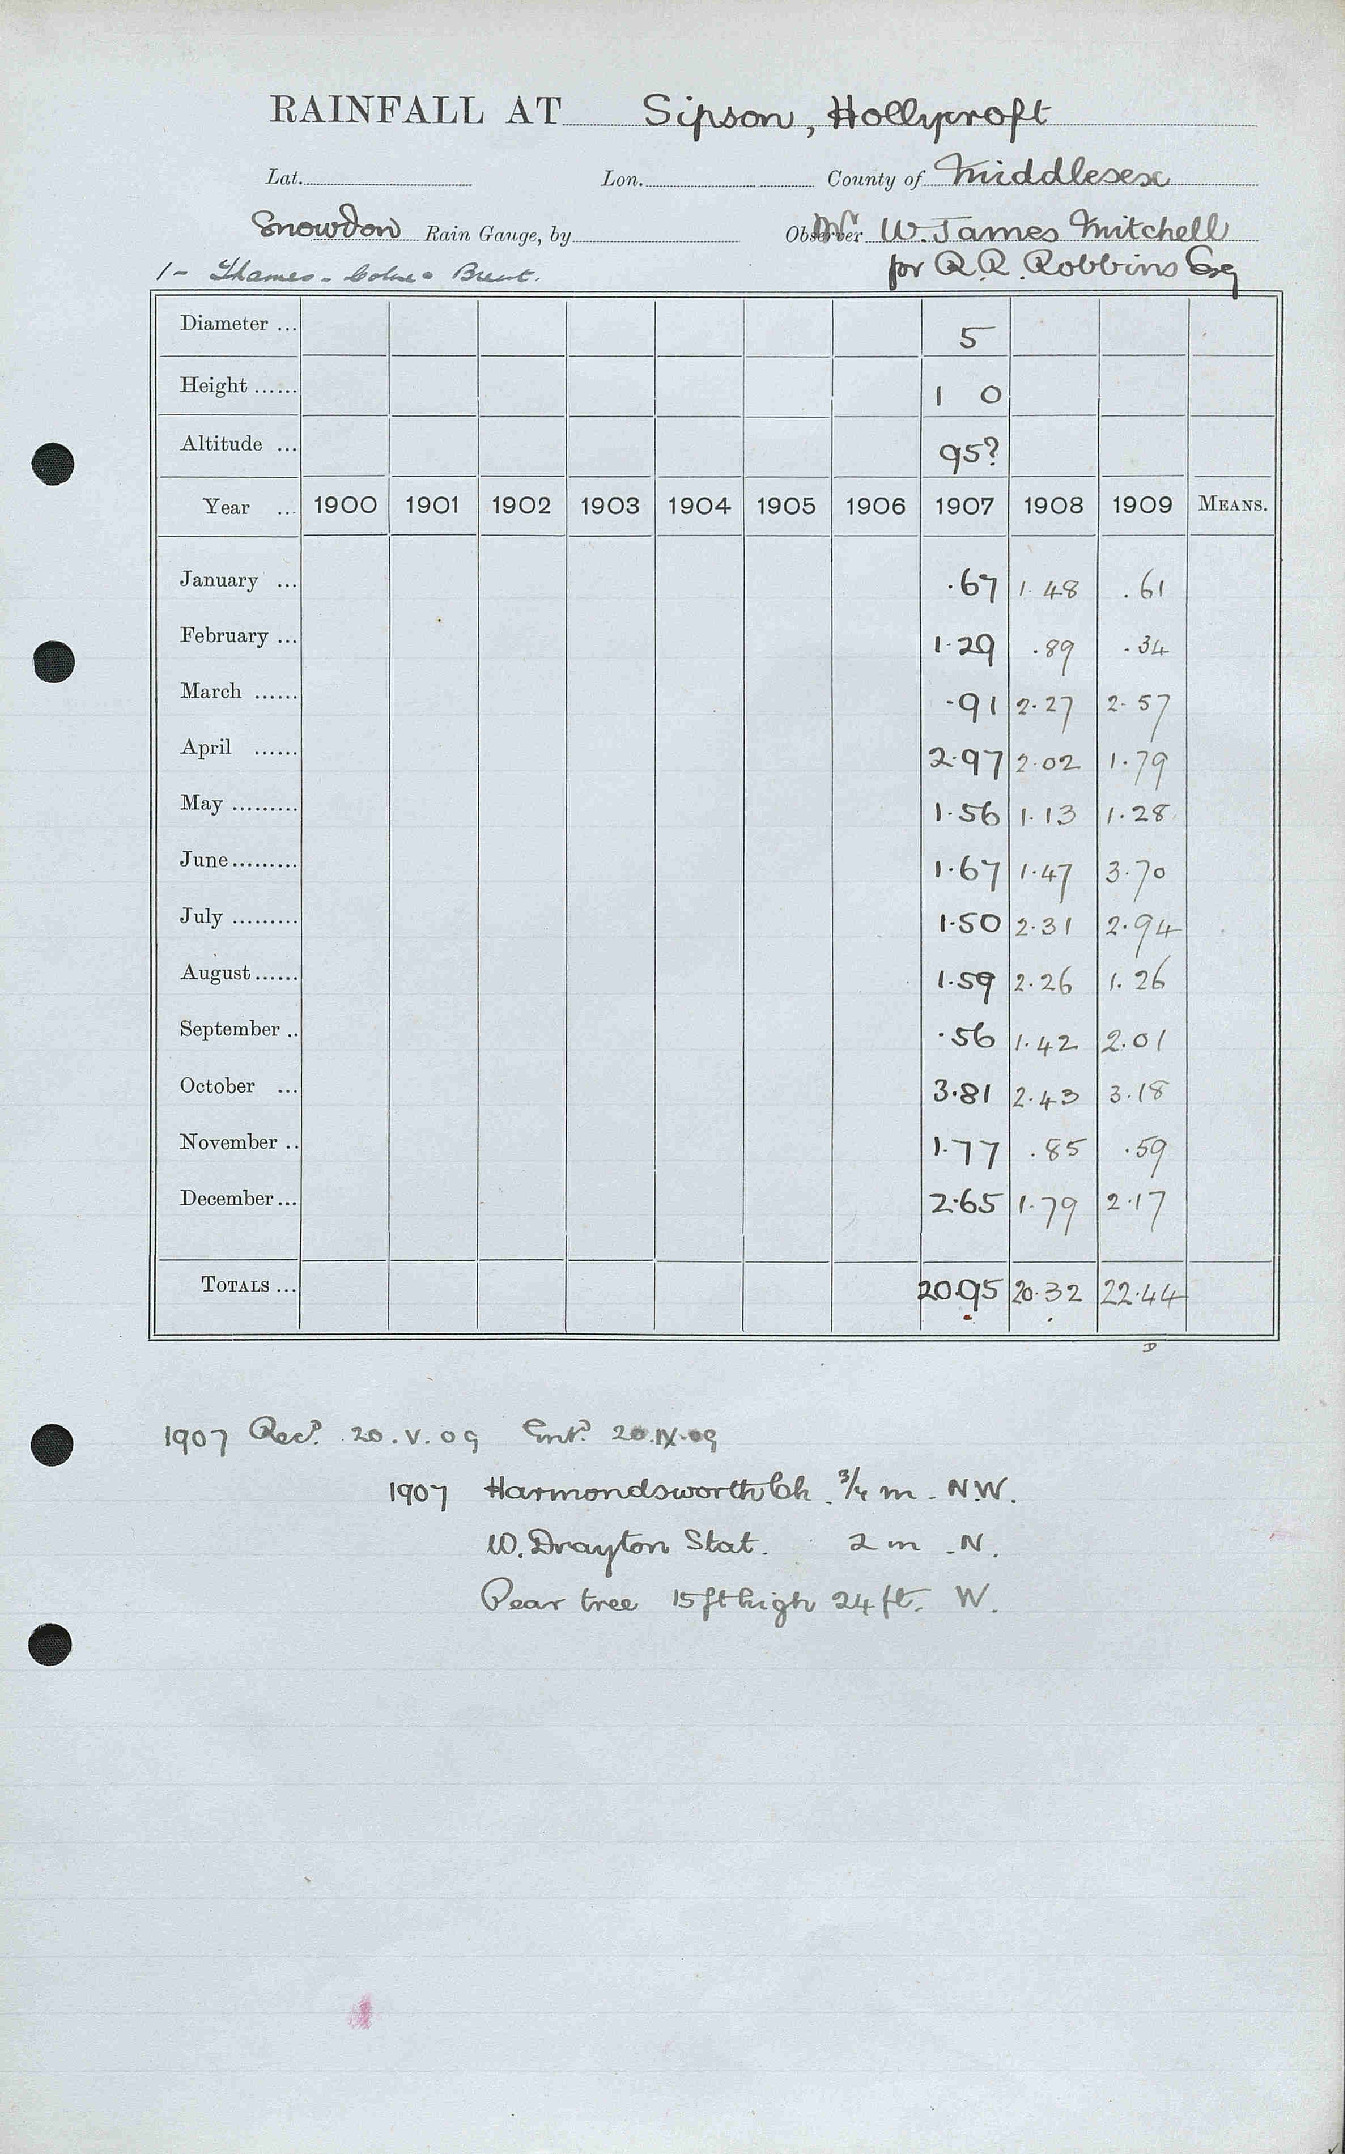 RAINFALL AT Sipson, Hollycroft
Lat. Lon. County of Middlesex
Snowdon Rain Gauge, by Observer Mr W. James Mitchell
1 - Thames - Colne - Brent. for R.R. Robbins Esq
Diameter ... 5
Height ...... 1 0
Altitude ... 95?
Year ... 1900 1901 1902 1903 1904 1905 1906 1907 1908 1909 MEANS.
January ... .67 1.48 .61
February ... 1.29 .89 .34
March ...... .91 2.27 2.57
April ...... 2.97 2.02 1.79
May ......... 1.56 1.13 1.28
June ......... 1.67 1.47 3.70
July ......... 1.50 2.31 2.94
August ...... 1.59 2.26 1.26
September .. .56 1.42 2.01
October ... 3.81 2.43 3.18
November .. 1.77 .85 .59
December ... 2.65 1.79 2.17
TOTALS ... 20.95 20.32 22.44
D
1907 Recd. 20.V.09 Entd. 20.IX.09
1907 Harmondsworth Ch. 3/4 m - N.W.
W. Drayton Stat. 2 m - N.
Pear tree 15 ft high 24 ft. W.